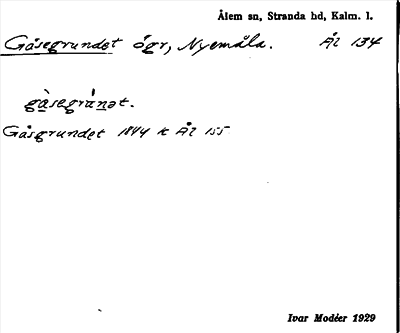 Ålem sn, Stranda hd, Kalm. l.
Gåsegrundet ögr, Nyemåla. Ål 134
gåsegrånət.
Gåsgrundet 1844 K Ål 155
Ivar Modéer 1929